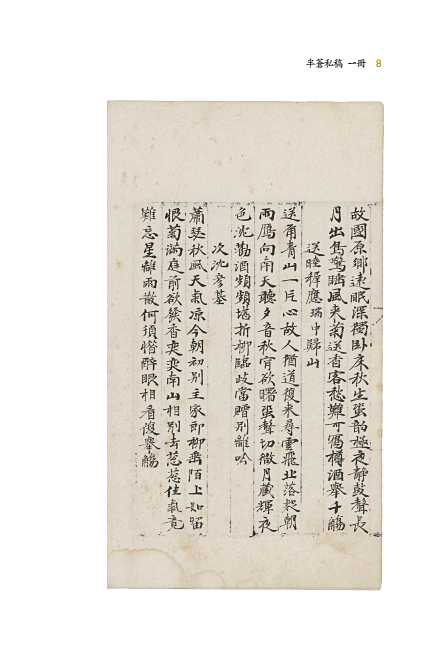 半蒼私稿 一冊 8
故國原鄉遠眠深獨卧床秋生蛩韵極夜靜鼓聲長
月出鴈驚晴風夾菊送香客愁難可寫樽酒舉千觴
送睦釋應瑞中歸山
送甭青山一片心故人猶道復來尋雲飛北落幾朝
雨鴈向南天聽夕音秋宵欲曙蛩聲切微月藏輝夜
色沈勸酒頻頻堪折柳臨岐當贈別離吟
次沈彥基
蕭瑟秋風天氣凉今朝初別主家郎柳垂陌上如留
恨菊滿庭前欲餞香奕奕南山相別去忩忩住氣竟
難忘星離雨散何須惜醉眼相看復舉觴